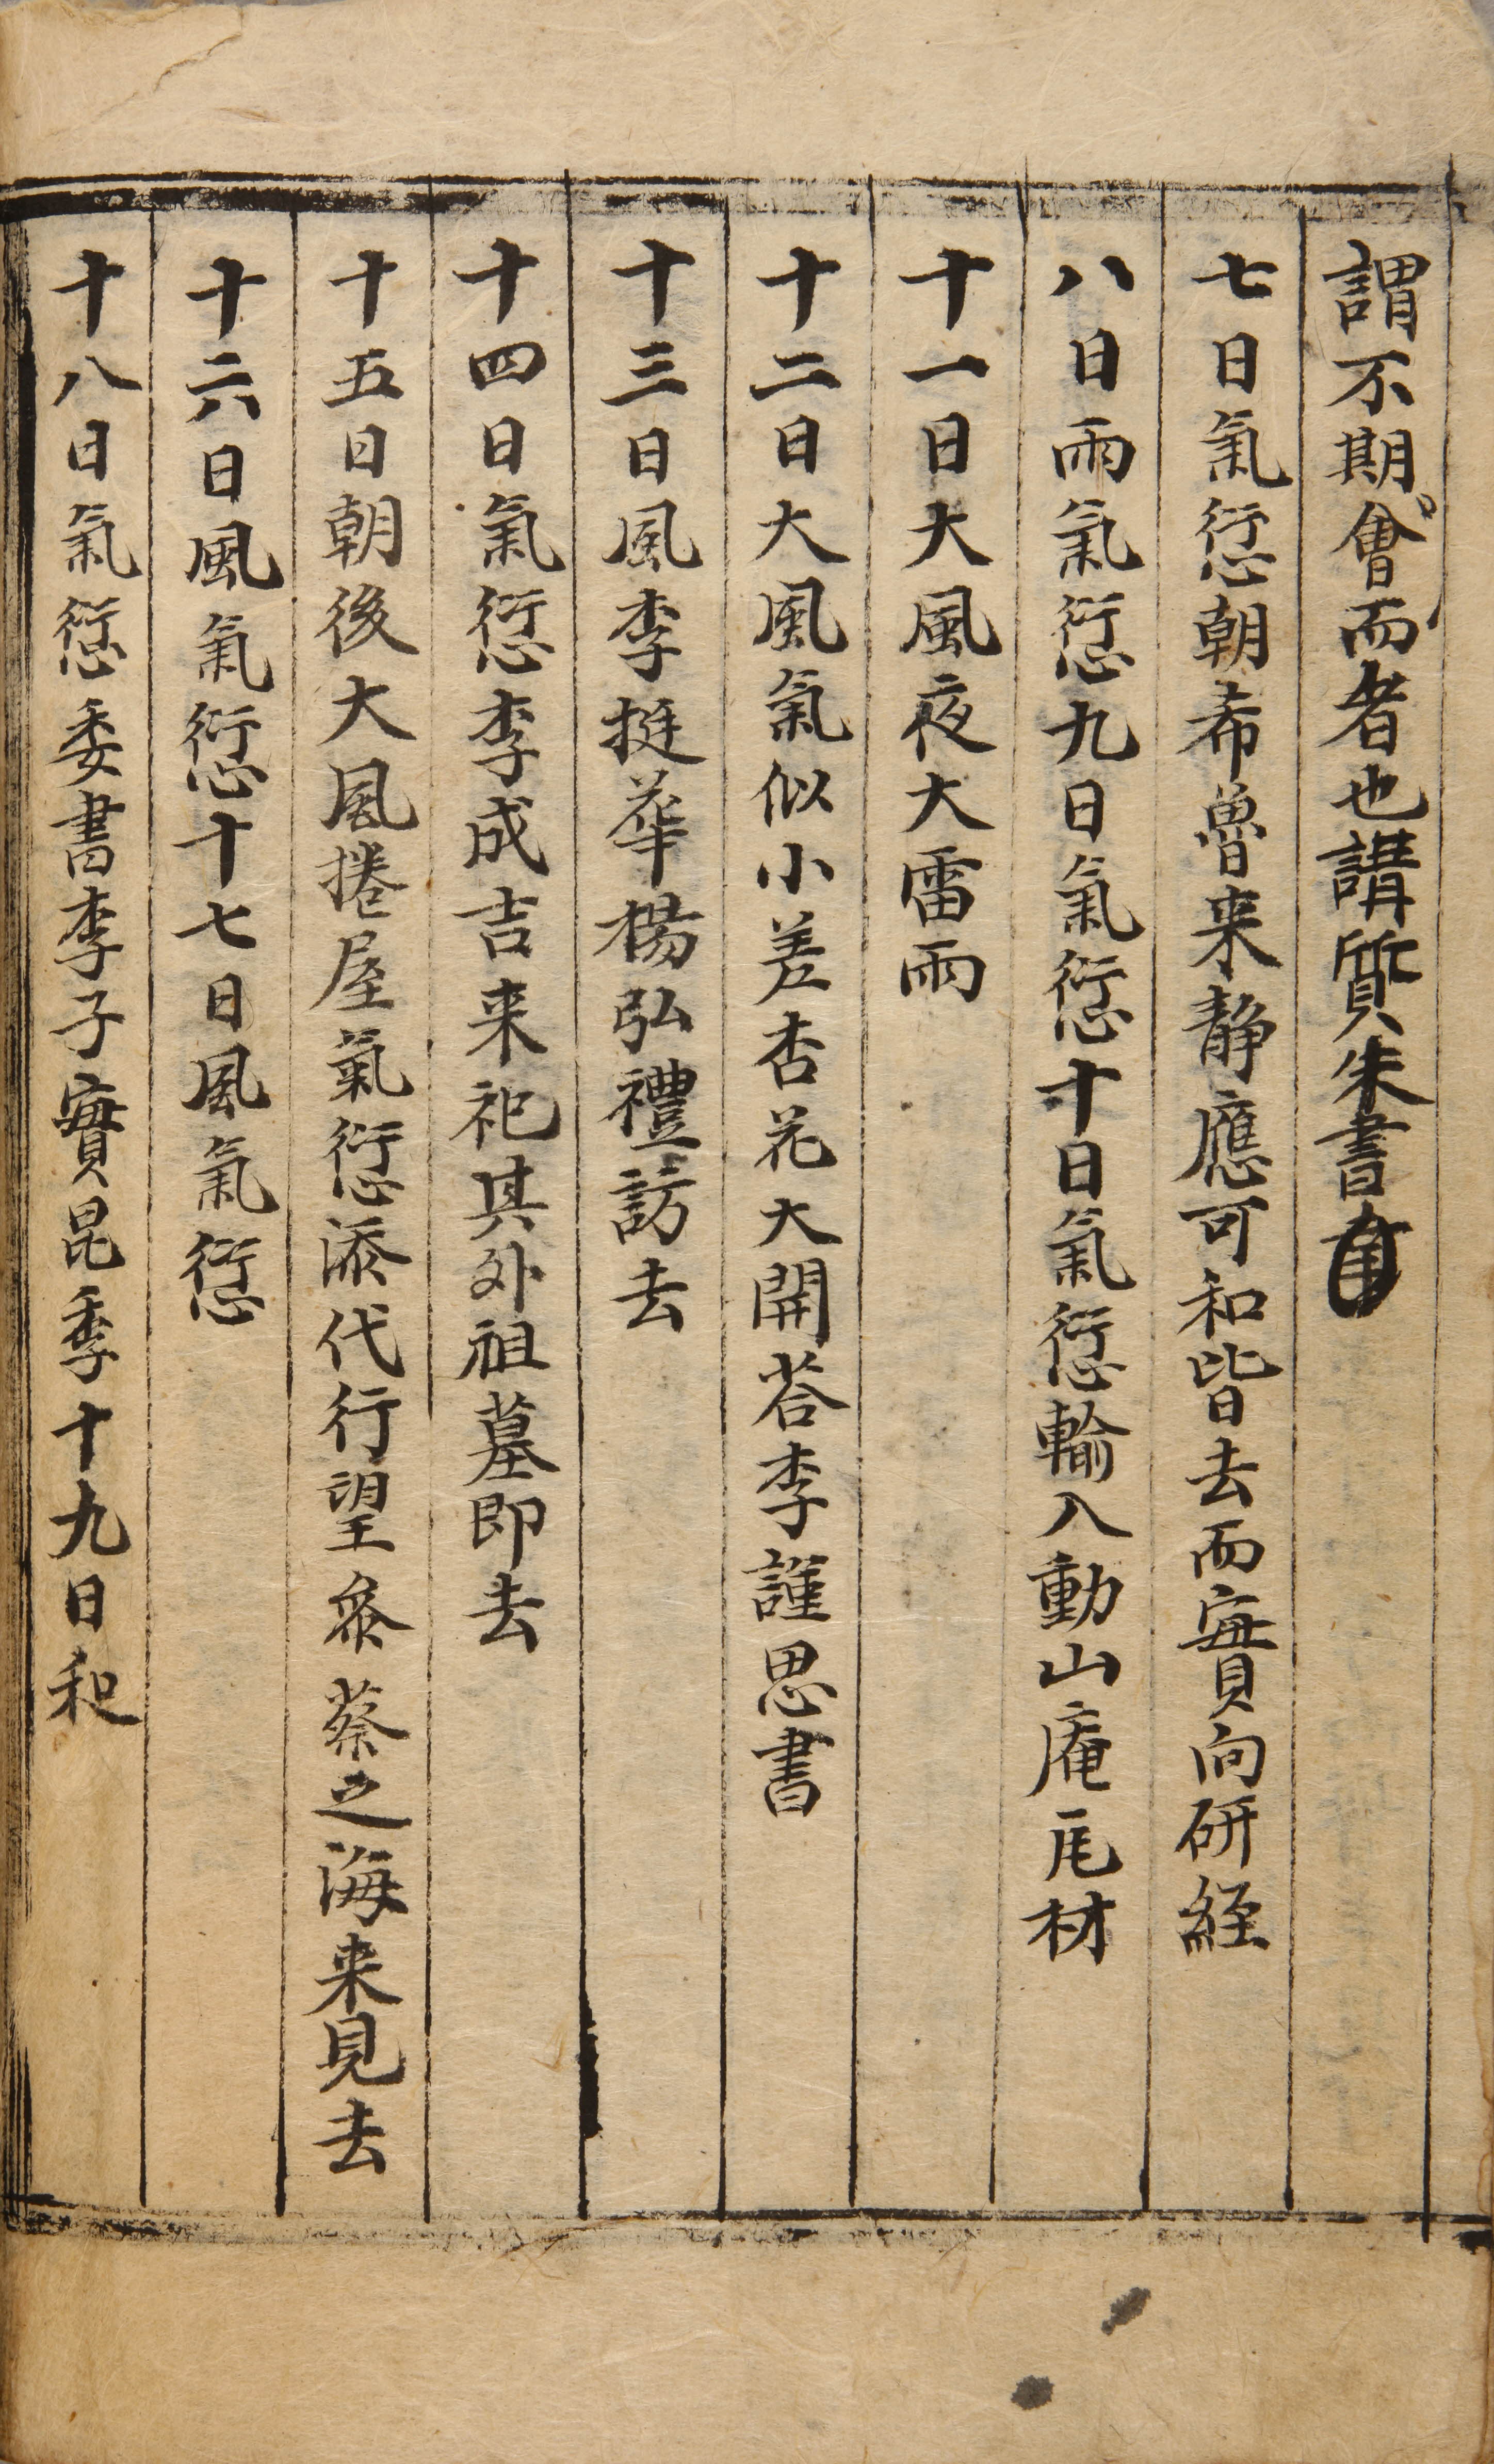 謂不期會而者也講質朱書
七日氣愆朝希魯来靜應可和皆去而實向研經
八日雨氣愆九日氣愆十日氣愆輸入動山庵瓦材
十一日大風夜大雷雨
十二日大風氣似小差杏花大開答李謹思書
十三日風李挺華楊弘禮訪去
十四日氣愆李成吉来祀其外祖墓即去
十五日朝後大風捲屋氣愆添代行望叅蔡之海来見去
十六日風氣愆十七日風氣愆
十八日氣愆委書李子實昆季十九日和